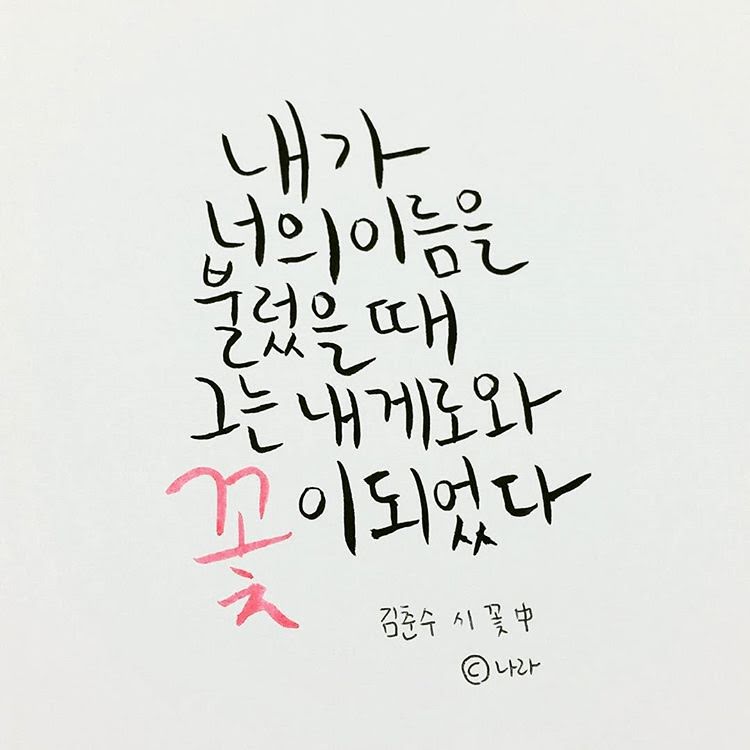 내가
너의 이름을
불렀을 때
그는 내게로 와
꽃이 되었다
김춘수 시 꽃 中
ⓒ나라